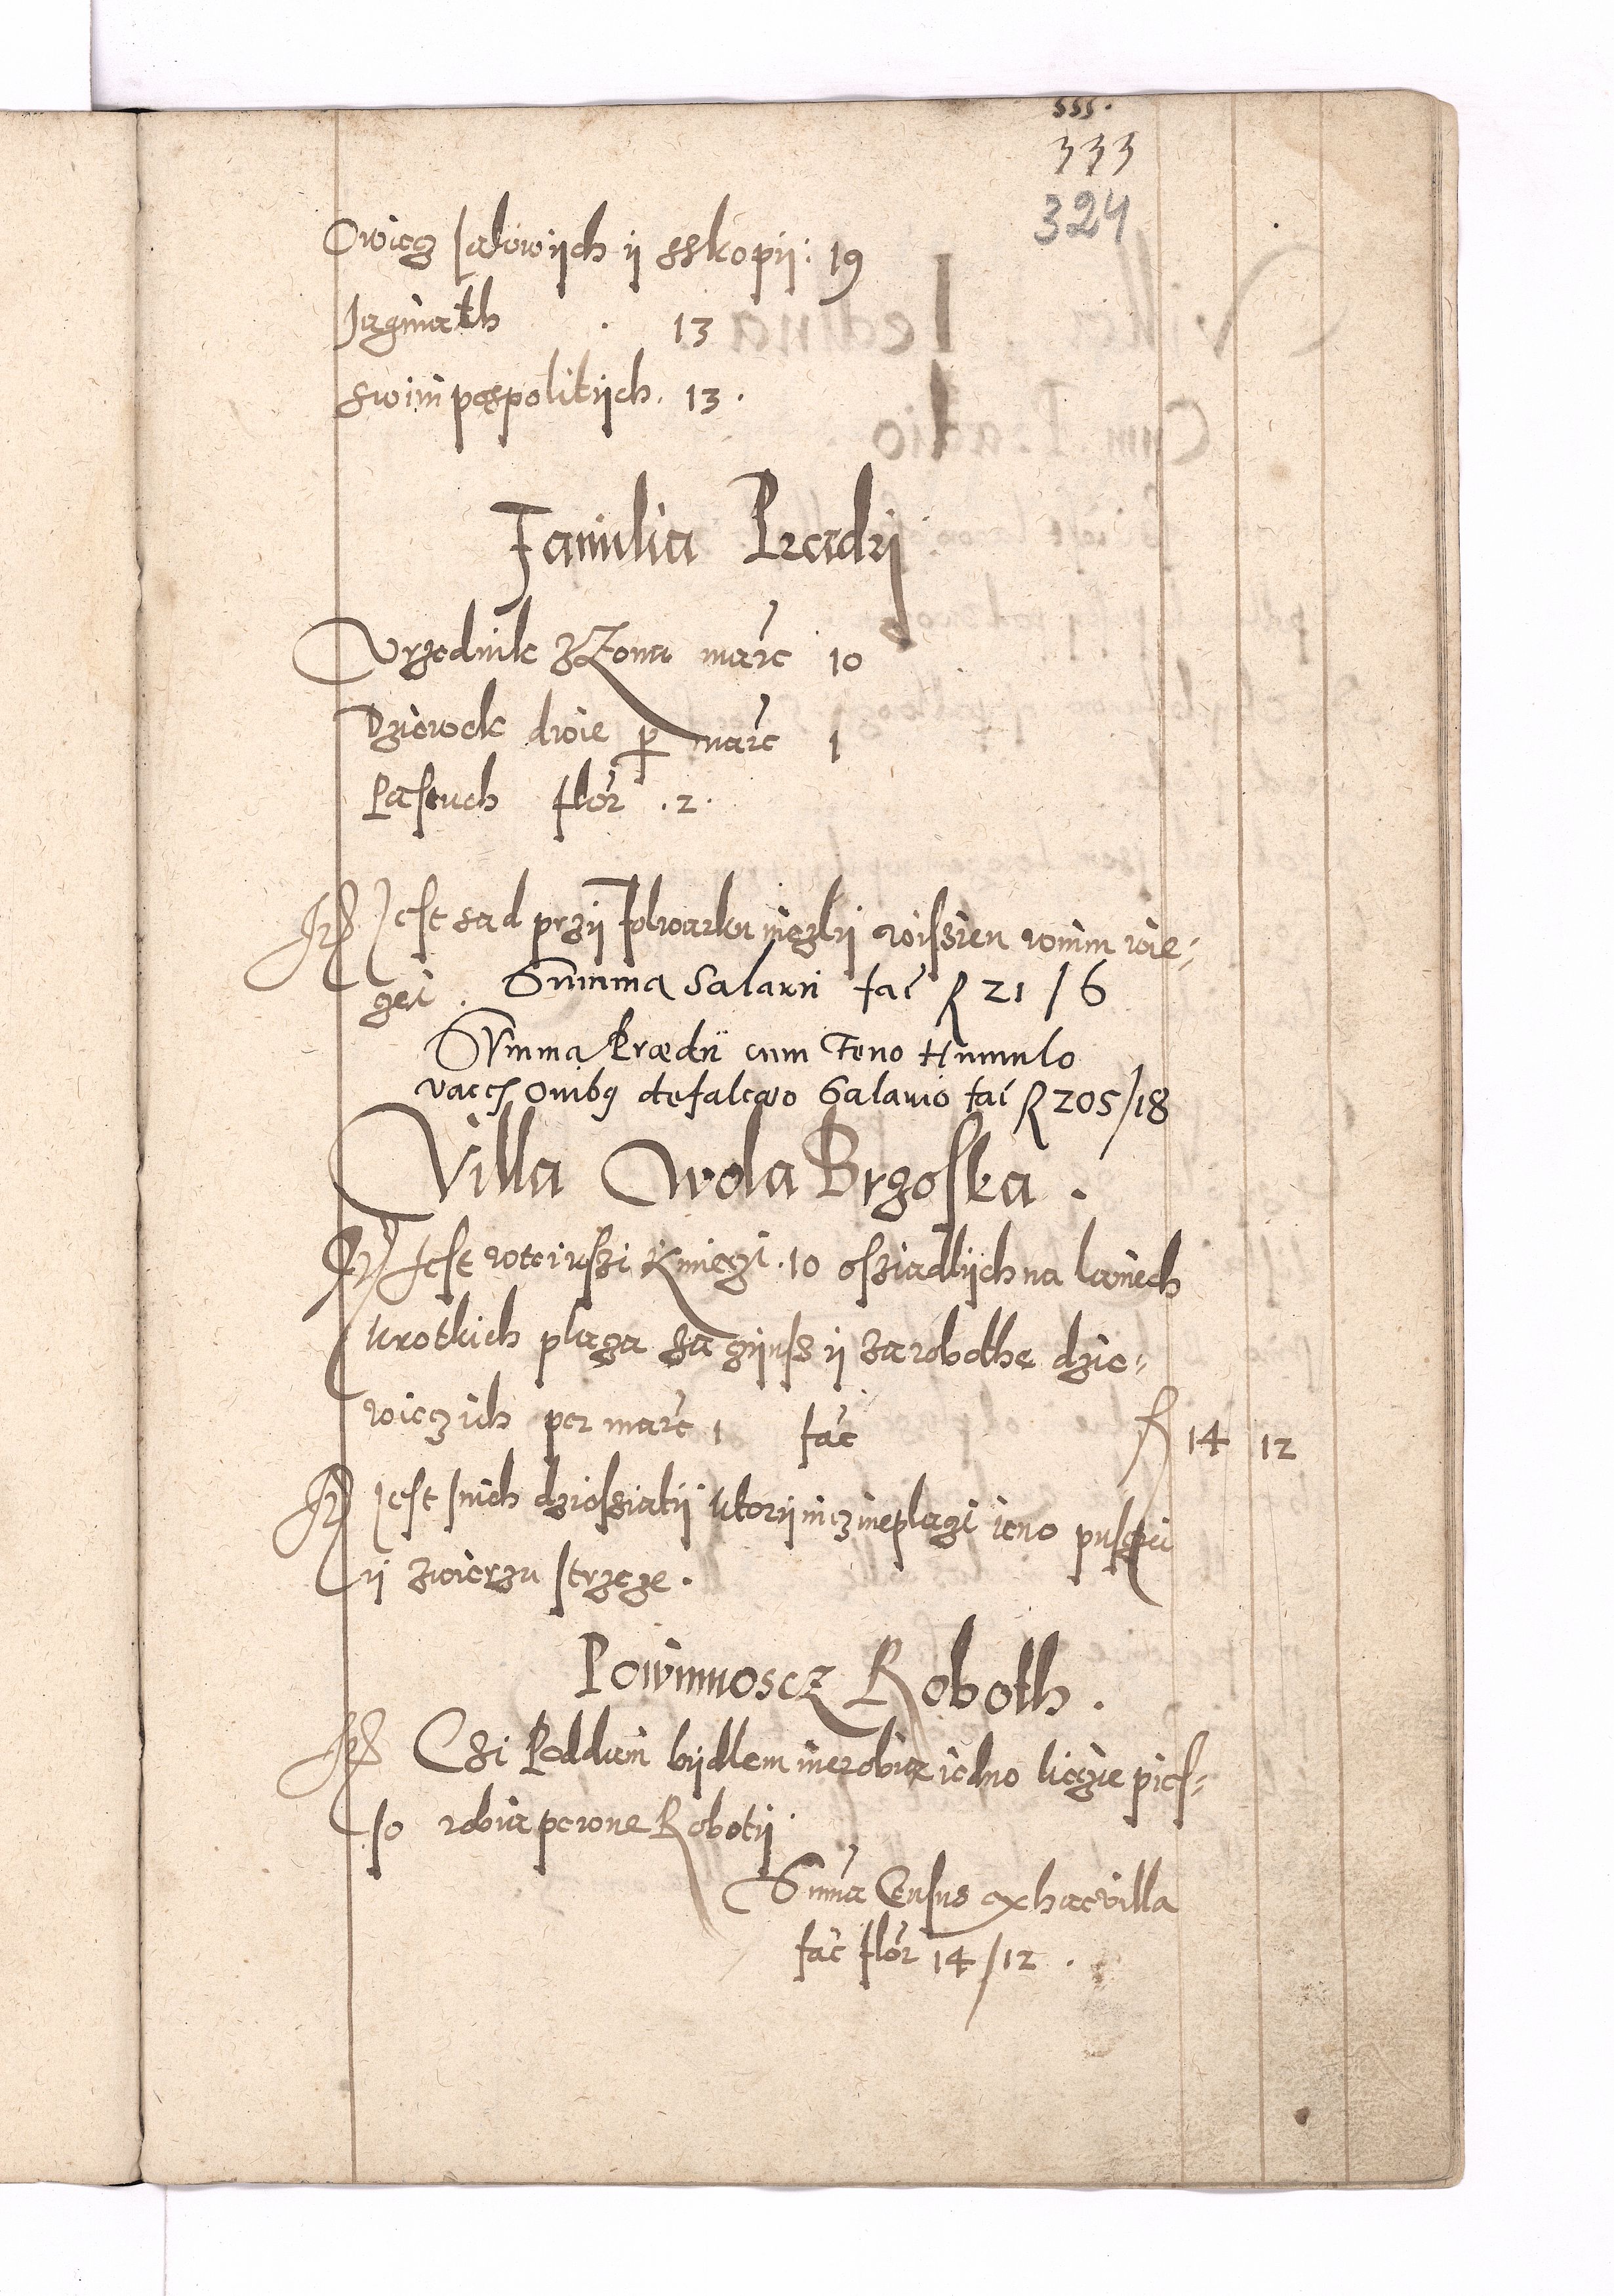 555.
333
324
Owiecz Jalowijch ij sskopij: 19
Jagniath . 13
swini pospolitijch. 13.
Familia Praedij
Vrzednik z Zona marc 10
Dziewek dwie per marc 1
Pastuch flor .2.
Jest sad przij folwarku niezlij wissien wnim wie-
cei. Summa Salarii fac R 21 / 6
Summa Praedii cum Feno Humulo
vaccis ovibus defalcato Salario fac R 205/18
Villa Wola Brzoska .
Jest wtei wszi Kmieczi .10 osziadlijch na laniech
krotkich placza za czijnss ij za robothe dzie-
wieczich per marc 1 fac R 14 12
Jest snich dziesziatij ktorij nicz nieplaczi ieno puszczi
ij zwierzu strzeze .
Powinnoscz Roboth .
Czi Poddani bijdlem nierobia iedno liczie pies-
so robia pewne Robotij
Summa Census ex hac villa
fac flor 14/12 .